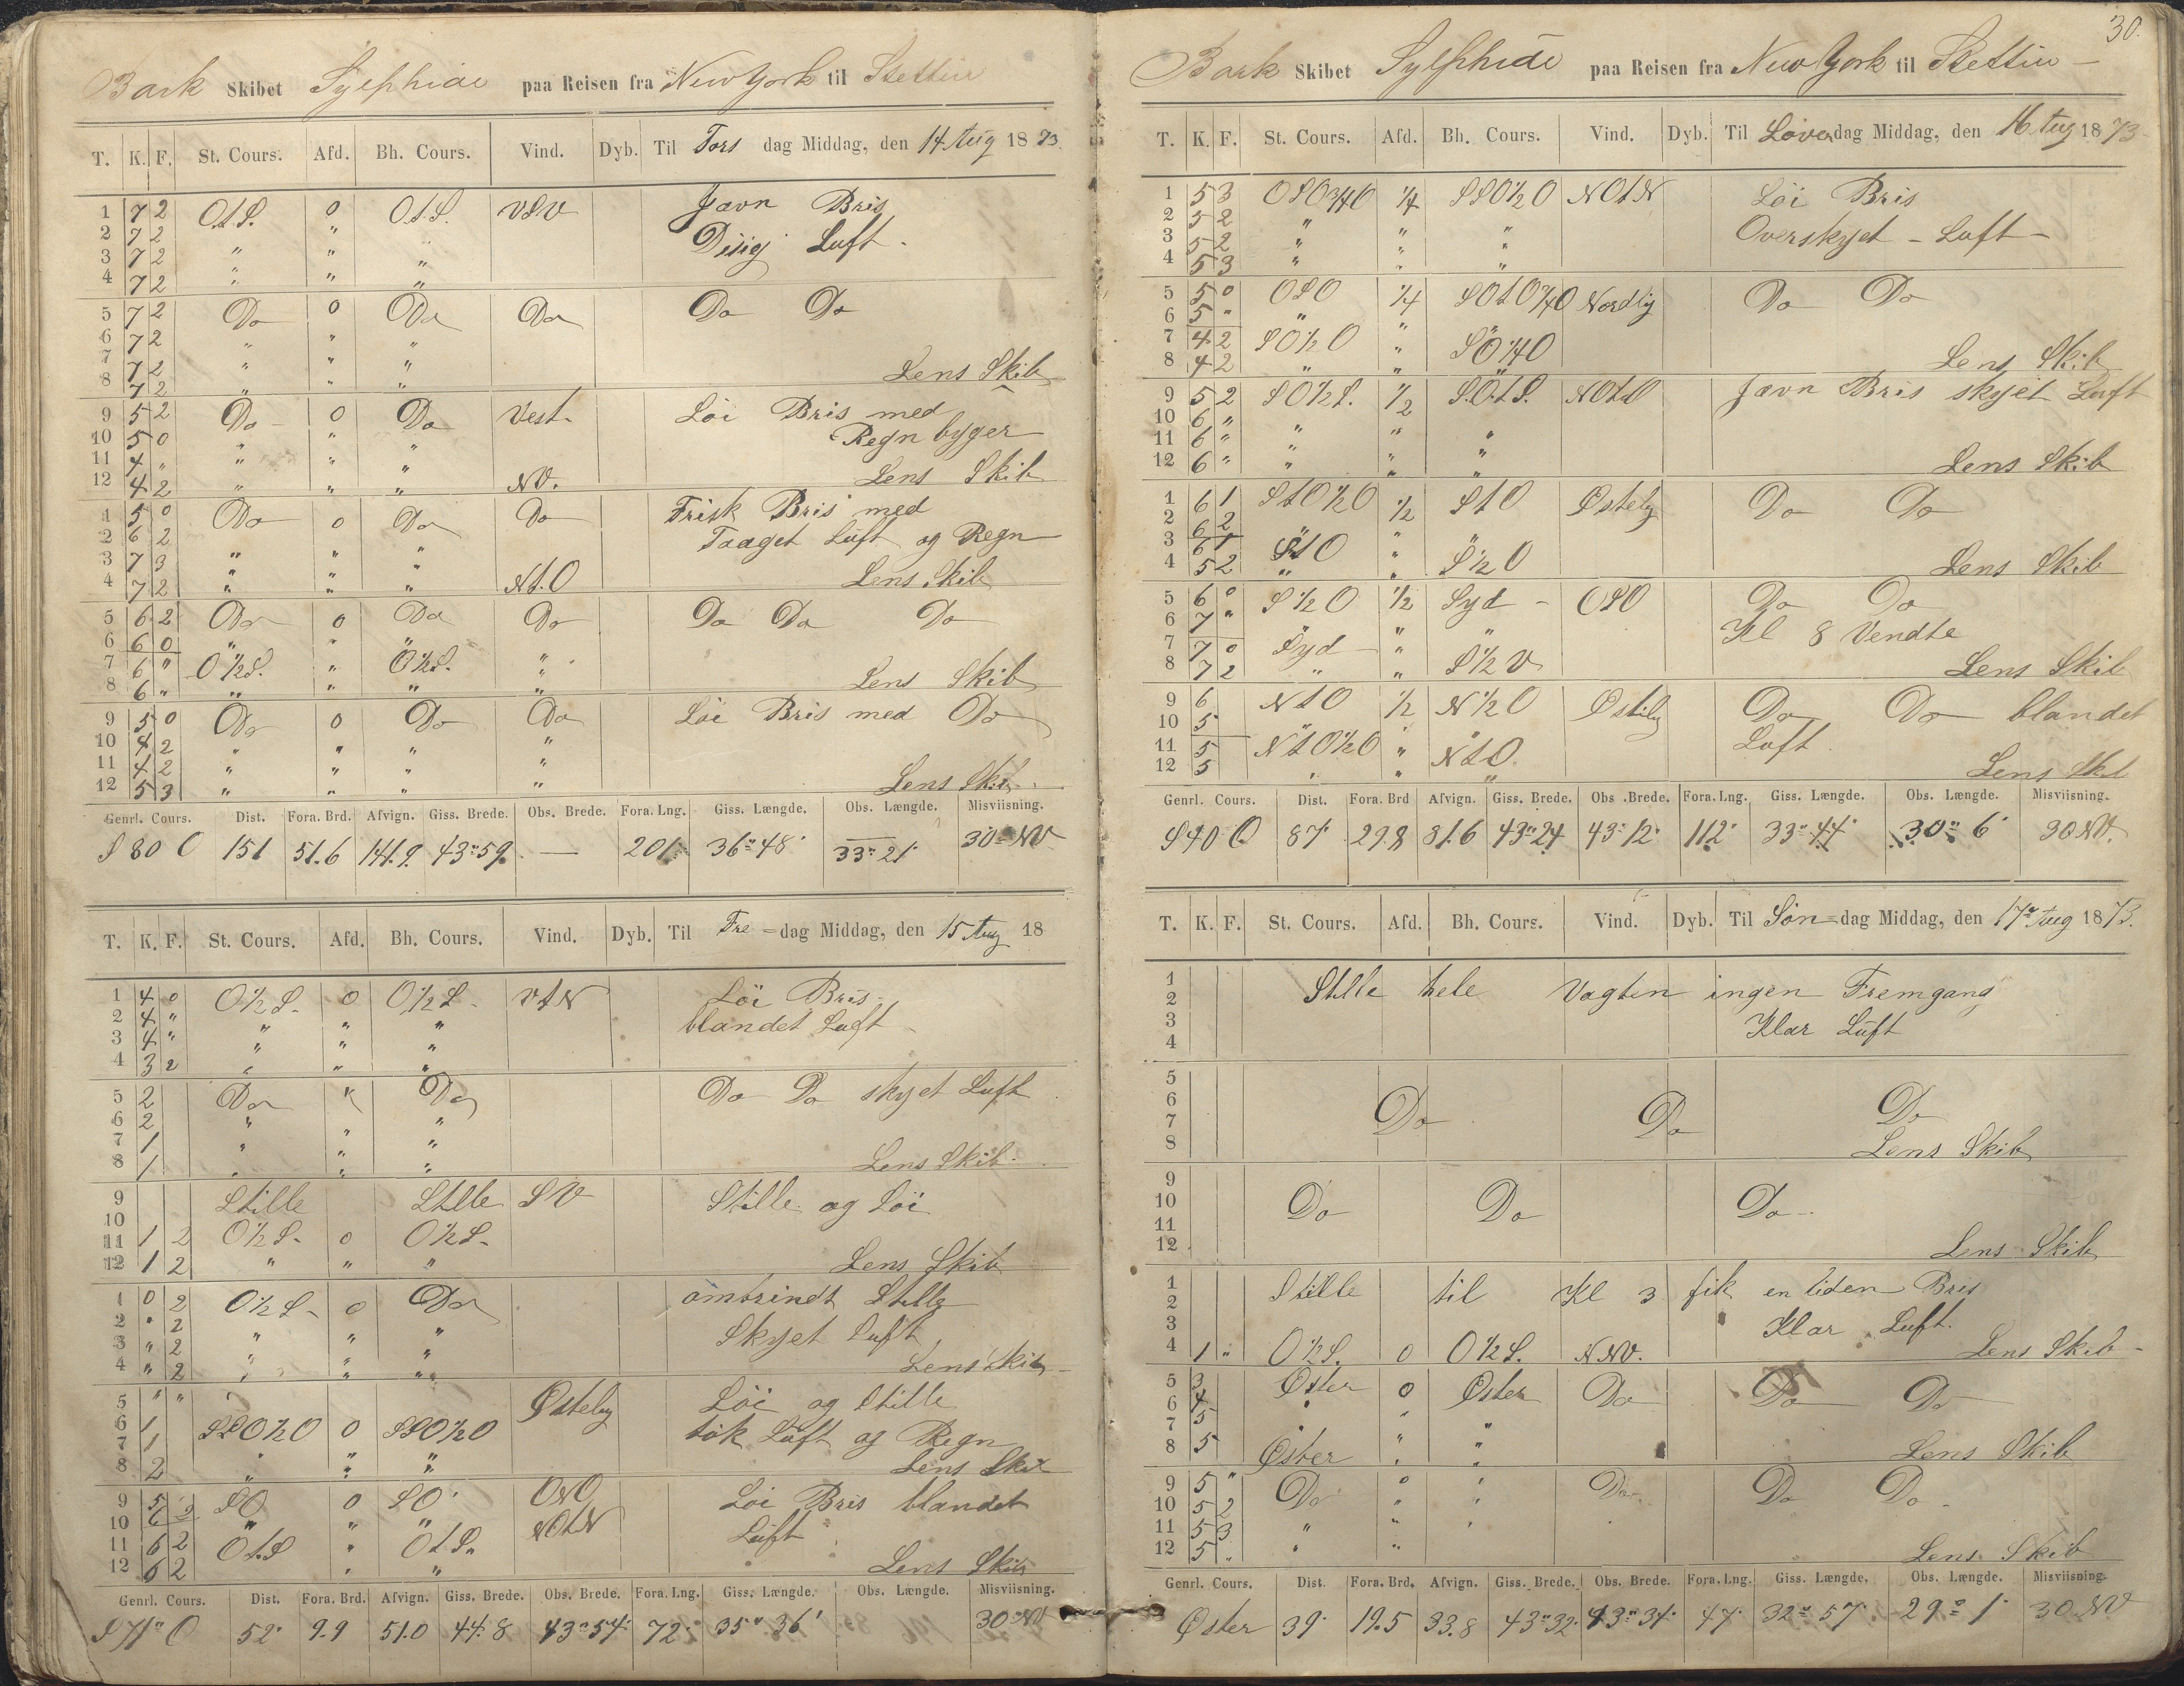 Bark Skibet Sylphide paa Reisen fra New York til Stettin
T. K. F. St. Cours. Afd. Bh. Cours. Vind. Dyb. Til Tors dag Middag, den 14 Aug 1873
1 7 2 O.t.S. 0 O.t.S. VSV Jævn Bris
2 7 2 " Disig Luft
3 7 2 " " "
4 7 2 " " "
5 7 2 Do 0 Do Do Do Do
6 7 2 " " "
7 7 2 " " "
8 7 2 " " " Lens Skib
9 5 2 Do 0 Do Vest Löi Bris med
10 5 0 " " Regn byger
11 4 " " " "
12 4 2 " " " NV. Lens Skib
1 5 0 Do 0 Do Do Frisk Bris med
2 6 2 Taaget Luft og Regn
3 7 3 " " "
4 7 2 " " " Nt.O Lens Skib
5 6 2 Do 0 Do Do Do Do Do
6 6 0 " " "
7 6 " O½S. " O½S. "
8 6 " " " " " Lens Skib
9 5 0 Do 0 Do Do Löi Bris med Do
10 4 2 " " " "
11 4 2 " " " "
12 5 3 " " " " Lens Skib
Genrl. Cours. Dist. Fora. Brd. Afvign. Giss. Brede. Obs. Brede. Fora. Lng. Giss. Længde. Obs. Længde. Misviisning.
S 80 O 151 51.6 141.9 43°59 — 201 36°48' 33°21' 30° NV
T. K. F. St. Cours. Afd. Bh. Cours. Vind. Dyb. Til Fre=dag Middag, den 15 Aug 18
1 4 0 O½S 0 O½S VtN Löi Bris
2 4 " " " " blandet Luft
3 4 " " " "
4 3 2 " " "
5 2 Do " Do Do Do skyet Luft
6 2 " " "
7 1 " " "
8 1 " " " Lens Skib
9 Stille Stille SV Stille og Löi
10
11 1 2 O½S 0 O½S
12 1 2 " " " Lens Skib
1 0 2 O½S 0 Do omtrindt Stille
2 " 2 " " " Skyet Luft
3 " 2 " " "
4 " 2 " " " Lens Skib
5 " " Östelig Löi og Stille
6 1 SSO½O 0 SSO½O tök Luft og Regn
7 1 " " "
8 2 " " " Lens Skib
9 5 2 SO 0 SO ONO Löi Bris blandet
10 6 2 " " " NOtN Luft
11 6 2 Ot.S " OtS.
12 6 2 " " Lens Skib
Genrl. Cours. Dist. Fora. Brd. Afvign. Giss. Brede. Obs. Brede. Fora. Lng. Giss. Længde. Obs. Længde. Misviisning.
S 71° O 52 9.9 51.0 44.8 43°54' 72 35° 36' 30° NV
30.
Bark Skibet Sylphide paa Reisen fra New York til Stettin
T. K. F. St. Cours. Afd. Bh. Cours. Vind. Dyb. Til Löverdag Middag, den 16 Aug 1873
1 5 3 OSO¾O ¼ SSO½O NOtN Löi Bris
2 5 2 " " " Overskyet Luft
3 5 2 " " "
4 5 3 " " "
5 5 0 OSO ¼ SOtO¼O Nordlig Do Do
6 5 " " "
7 4 2 SO½O " SO¼O
8 4 2 " " " Lens Skib
9 5 2 SO½S. ½ S.O.t.S. NOtO Jævn Bris skyet Luft
10 6 " " " "
11 6 " " " "
12 6 " " " " Lens Skib
1 6 1 StO½O ½ StO Östelig Do Do
2 6 2 " "
3 6 1 StO " "
4 5 2 " " S½O Lens Skib
5 6 0 S½O ½ Syd OSO Do Do
6 7 " " " " Kl 8 Vendte
7 7 0 Syd "
8 7 2 " " S½V Lens Skib
9 6 NtO ½ N½O Östlig Do Do blandet
10 5 " " Luft
11 5 NtO½O " NtO.
12 5 " " " Lens Skib
Genrl. Cours. Dist. Fora. Brd Afvign. Giss. Brede. Obs. Brede. Fora. Lng. Giss. Længde. Obs. Længde. Misviisning.
S 40 O 87 29.8 81.6 43°24 43°12 112 33°44' 30° 6' 30 NV.
T. K. F. St. Cours. Afd. Bh. Cours. Vind. Dyb. Til Sön=dag Middag, den 17 Aug 1873.
1 Stille hele Vagten ingen Fremgang
2 Klar Luft
3
4
5
6
7 Do Do Do
8 Lens Skib
9
10 Do Do Do
11
12 Lens Skib
1 Stille til Kl 3 fik en liden Bris
2
3 Klar Luft.
4 1 " O½S. 0 O½S. NNV. Lens Skib
5 3 Öster 0 Öster Do Do Do
6 4 " " "
7 5 " "
8 5 Öster " " Lens Skib
9 5 " Do 0 " Do Do Do
10 5 2 " "
11 5 3 " " "
12 5 " " " Lens Skib
Genrl. Cours. Dist. Fora. Brd. Afvign. Giss. Brede. Obs. Brede. Fora. Lng. Giss. Længde. Obs. Længde. Misviisning.
Öster 39 19.5 33.8 43°32' 43°31' 47 32° 57' 29° 1' 30 NV